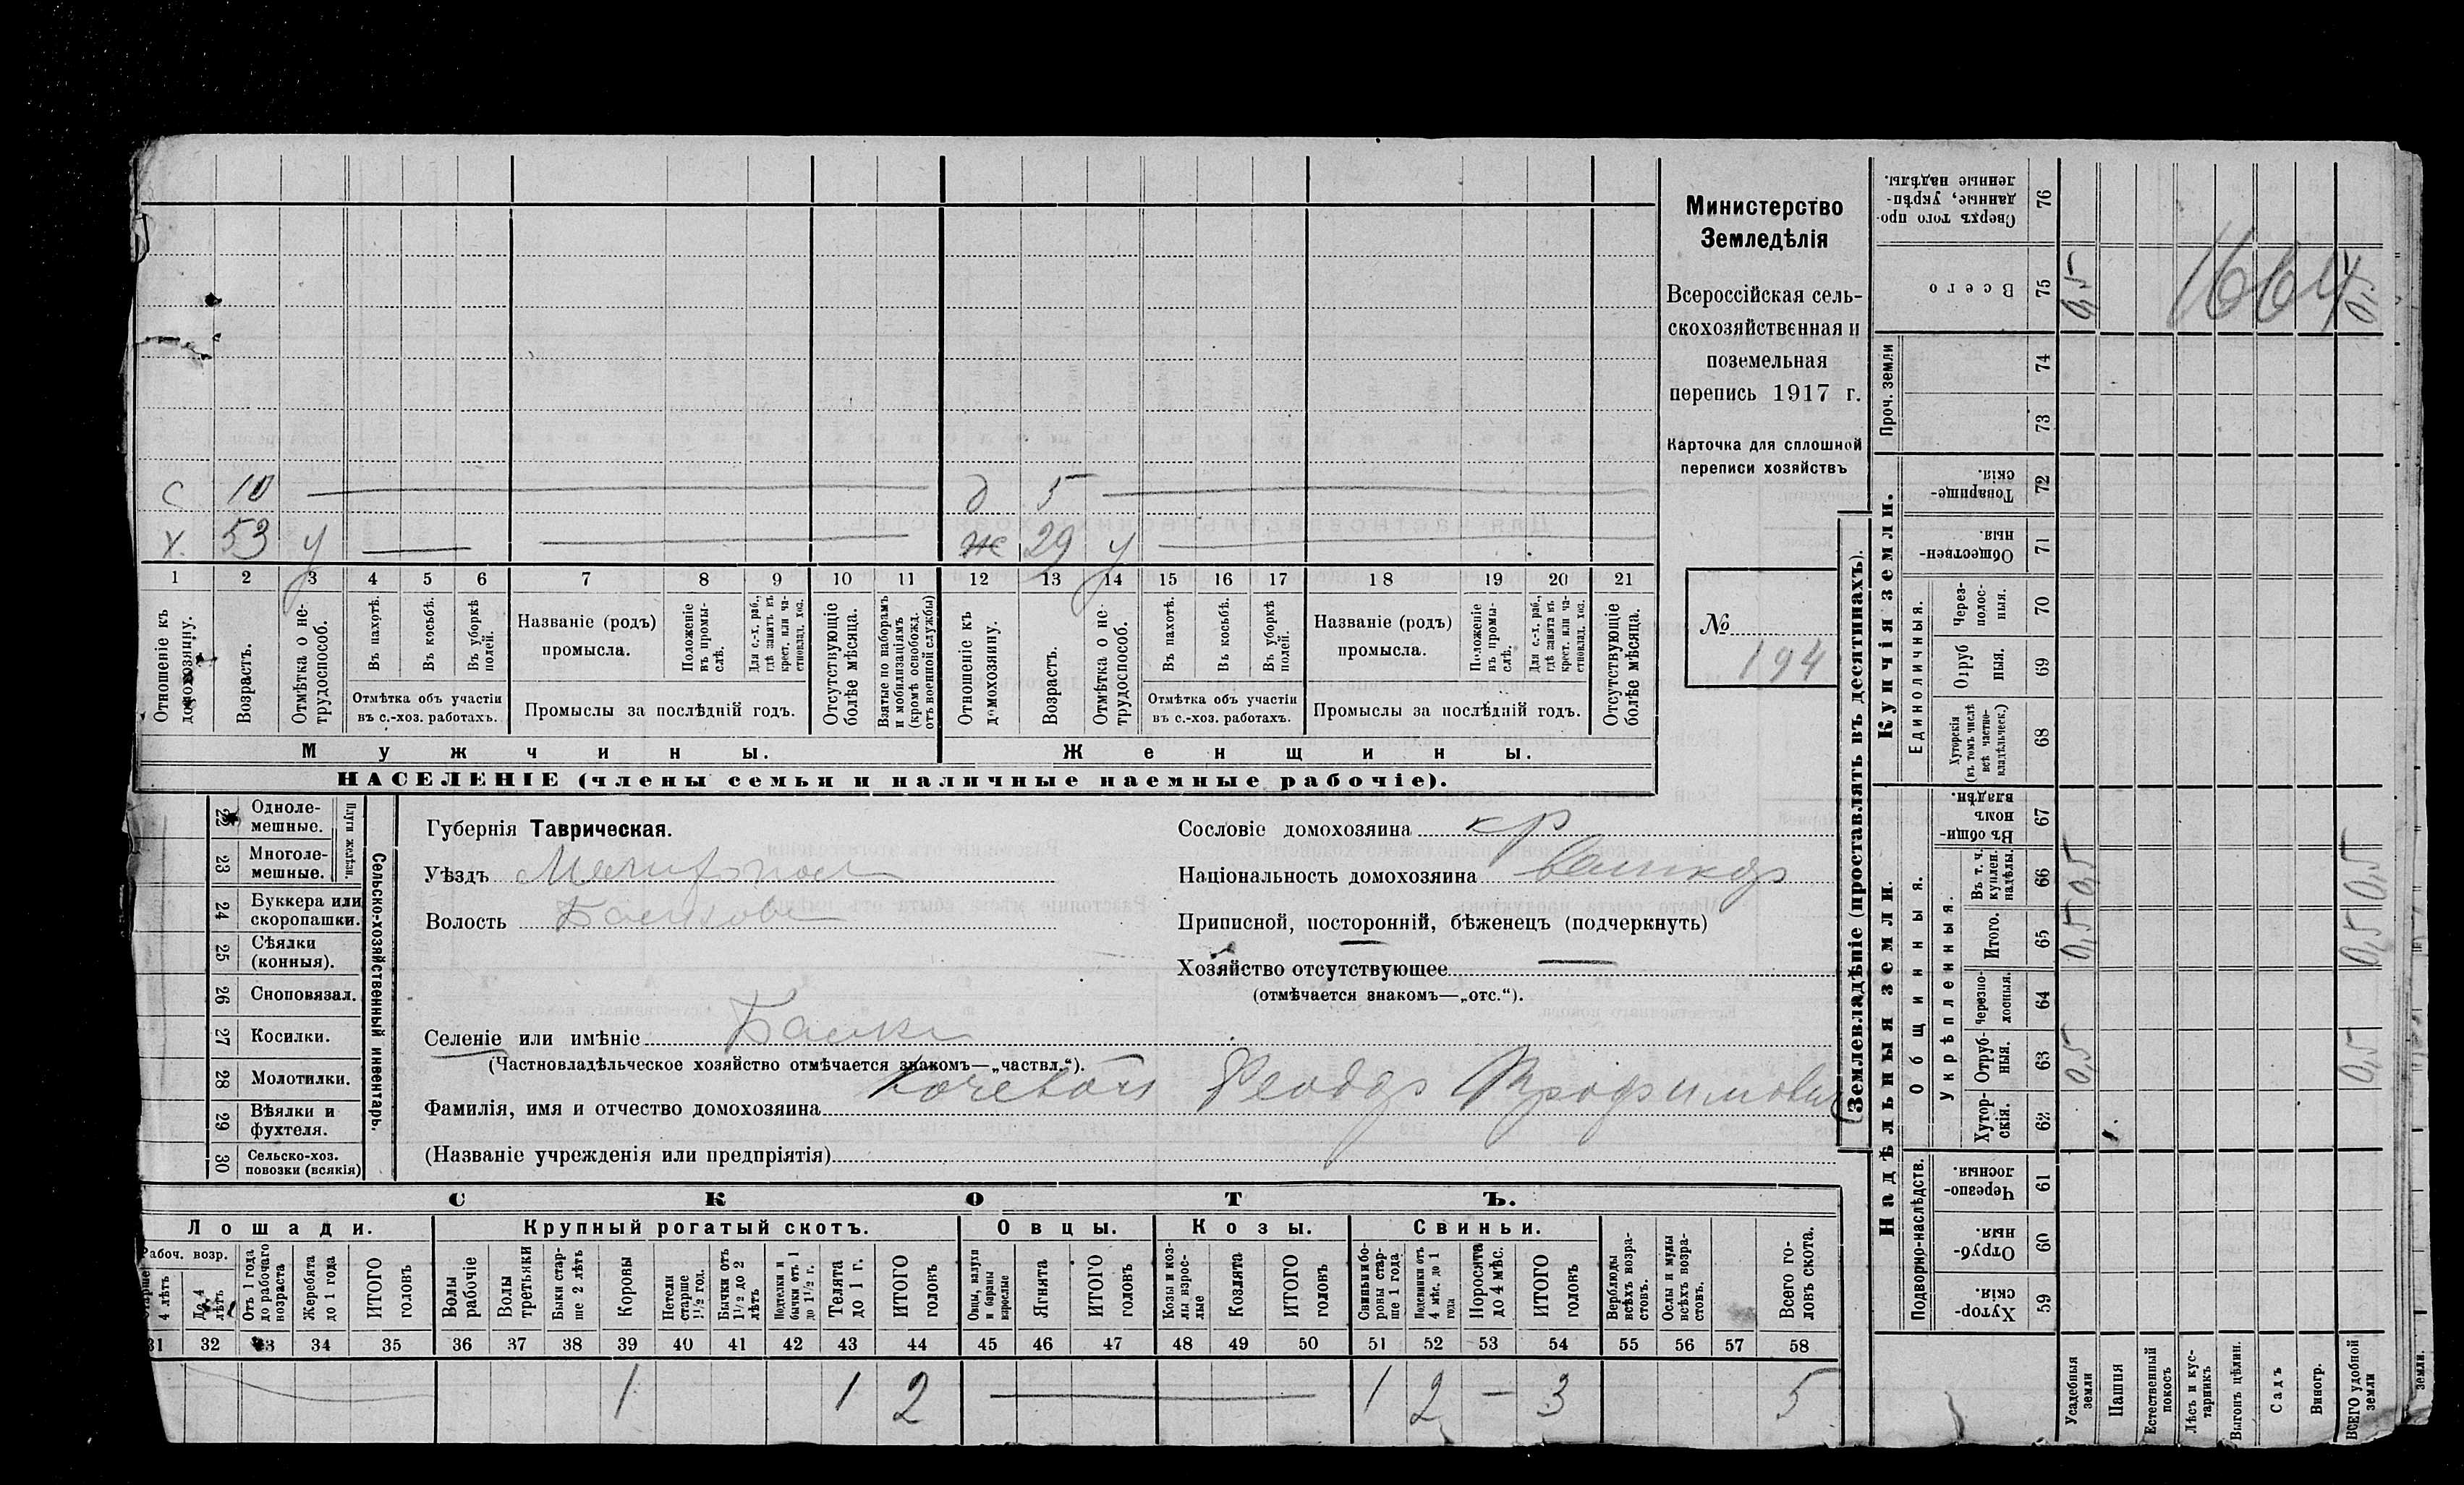 Министерство
Земледѣлія
Всероссійская сель-
скохозяйственная и
поземельная
перепись 1917 г.
Карточка для сплошной
переписи хозяйствъ
№ 194
с 10 д 5
х. 53 у ж 29 у
1 2 3 4 5 6 7 8 9 10 11 12 13 14 15 16 17 18 19 20 21
Отношеніе къ домохозяину.
Возрастъ.
Отмѣтка о не-трудоспособ.
Въ пахотѣ.
Въ косьбѣ.
Въ уборкѣ полей.
Отмѣтка объ участіи
въ с.-хоз. работахъ.
Названіе (родъ)
промысла.
Положеніе въ промы-слѣ.
Для с.-х. раб., гдѣ занятъ въ крест. или ча-стновлад. хоз.
Промыслы за послѣдній годъ.
Отсутствующіе болѣе мѣсяца.
Взятые по наборамъ и мобилизаціямъ (кромѣ освобожд. отъ военной службы)
Отношеніе къ домохозяину.
Возрастъ.
Отмѣтка о не-трудоспособ.
Въ пахотѣ.
Въ косьбѣ.
Въ уборкѣ полей.
Отмѣтка объ участіи
въ с.-хоз. работахъ.
Названіе (родъ)
промысла.
Положеніе въ промы-слѣ.
Для с.-х. раб., гдѣ занята въ крест. или ча-стновлад. хоз.
Промыслы за послѣдній годъ.
Отсутствующіе болѣе мѣсяца.
Мужчины. Женщины.
НАСЕЛЕНІЕ (члены семьи и наличные наемные рабочіе).
22 Одноле-мешные.
23 Многоле-мешные.
Плуги желѣзн.
24 Буккера или скоропашки.
25 Сѣялки (конныя).
26 Сноповязал.
27 Косилки.
28 Молотилки.
29 Вѣялки и фухтеля.
30 Сельско-хоз. повозки (всякія)
Сельско-хозяйственный инвентарь.
Губернія Таврическая.
Уѣздъ Мелитопол
Волость Балков
Сословіе домохозяина кр
Національность домохозяина
Приписной, посторонній, бѣженецъ (подчеркнуть)
Хозяйство отсутствующее
(отмѣчается знакомъ—„отс.“).
Селеніе или имѣніе Балки
(Частновладѣльческое хозяйство отмѣчается знакомъ—„частвл.“).
Фамилія, имя и отчество домохозяина Кочевой Феодор Трофимович
(Названіе учрежденія или предпріятія)
СКОТЪ.
Лошади. Крупный рогатый скотъ. Овцы. Козы. Свиньи.
Рабоч. возр.
Старше 4 лѣтъ
До 4 лѣтъ
Отъ 1 года до рабочаго возраста
Жеребята до 1 года
ИТОГО головъ
Волы рабочіе
Волы третьяки
Быки стар-ше 2 лѣтъ
Коровы
Нетели старше 1½ год.
Бычки отъ 1½ до 2 лѣтъ
Подтелки и бычки отъ 1 до 1½ г.
Телята до 1 г.
ИТОГО головъ
Овцы, валухи и бараны взрослые
Ягнята
ИТОГО головъ
Козы и коз-лы взрос-лые
Козлята
ИТОГО головъ
Свиньи и бо-ровы стар-ше 1 года
Подсвинки отъ 4 мѣс. до 1 года
Поросята до 4 мѣс.
ИТОГО головъ
Верблюды всѣхъ возра-стовъ.
Ослы и мулы всѣхъ возра-стовъ.
Всего го-ловъ скота.
31 32 33 34 35 36 37 38 39 40 41 42 43 44 45 46 47 48 49 50 51 52 53 54 55 56 57 58
1 1 2 — 1 2 — 3 5
(Землевладѣніе (проставлять въ десятинахъ).
Сверхъ того про-данные, укрѣп-ленные надѣлы. 76
Всего 75 0,5 0,5
1664
Проч. земли 74
73
Купчія земли.
Товарище-скія. 72
Обществен-ныя. 71
Единоличныя.
Через-полос-ныя. 70
Отруб ныя. 69
Хуторскія (въ томъ числѣ всѣ частно-владѣльческ.) 68
Надѣльныя земли.
Общинныя.
Въ общи-номъ владѣн. 67
Укрѣпленныя.
Въ т. ч. куплен. надѣлы. 66 0,5 0,5
Итого. 65 0,5 0,5
Черезпо-лосныя. 64
Отруб-ныя. 63 0,5 0,5
Хутор-скія. 62
Подворно-наслѣдств.
Черезпо-лосныя. 61
Отруб-ныя. 60
Хутор-скія. 59
Усадебныя земли
Пашня
Естественный покосъ
Лѣсъ и кус-тарникъ
Выгонъ цѣлин.
Садъ
Виногр.
ВСЕГО удобной земли
земли.